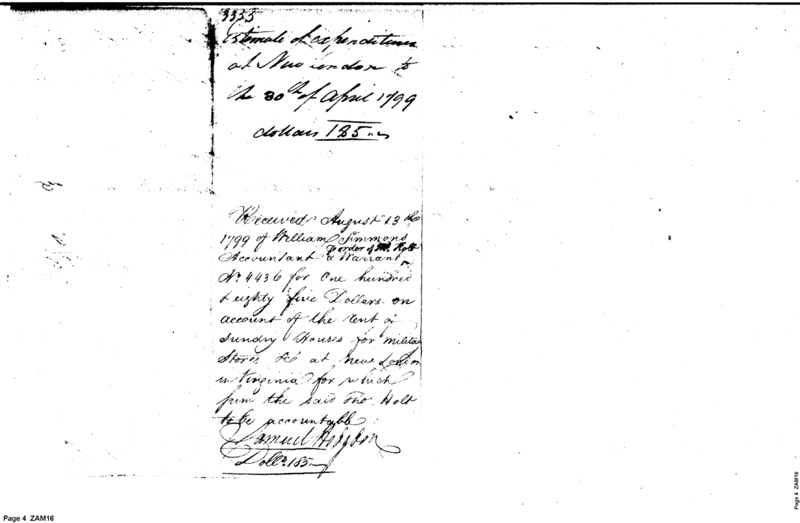 3335
Estimate of expenditures
at New London to
the 30th of April 1799
dollars 185
Received August 13th
1799 of William Simmons
pr order of Mr. Holt
Accountant a Warrant
No. 4436 for One hundred
& eighty five Dollars on
account of the rent of
Sundry Houses for Militar
Stores &c at New London
in Virginia for which
sum the said Tho. Holt
to be accountable
Samuel Hodgdon
Dolls. 185
Page 4 ZAM16
Page 4 ZAM16